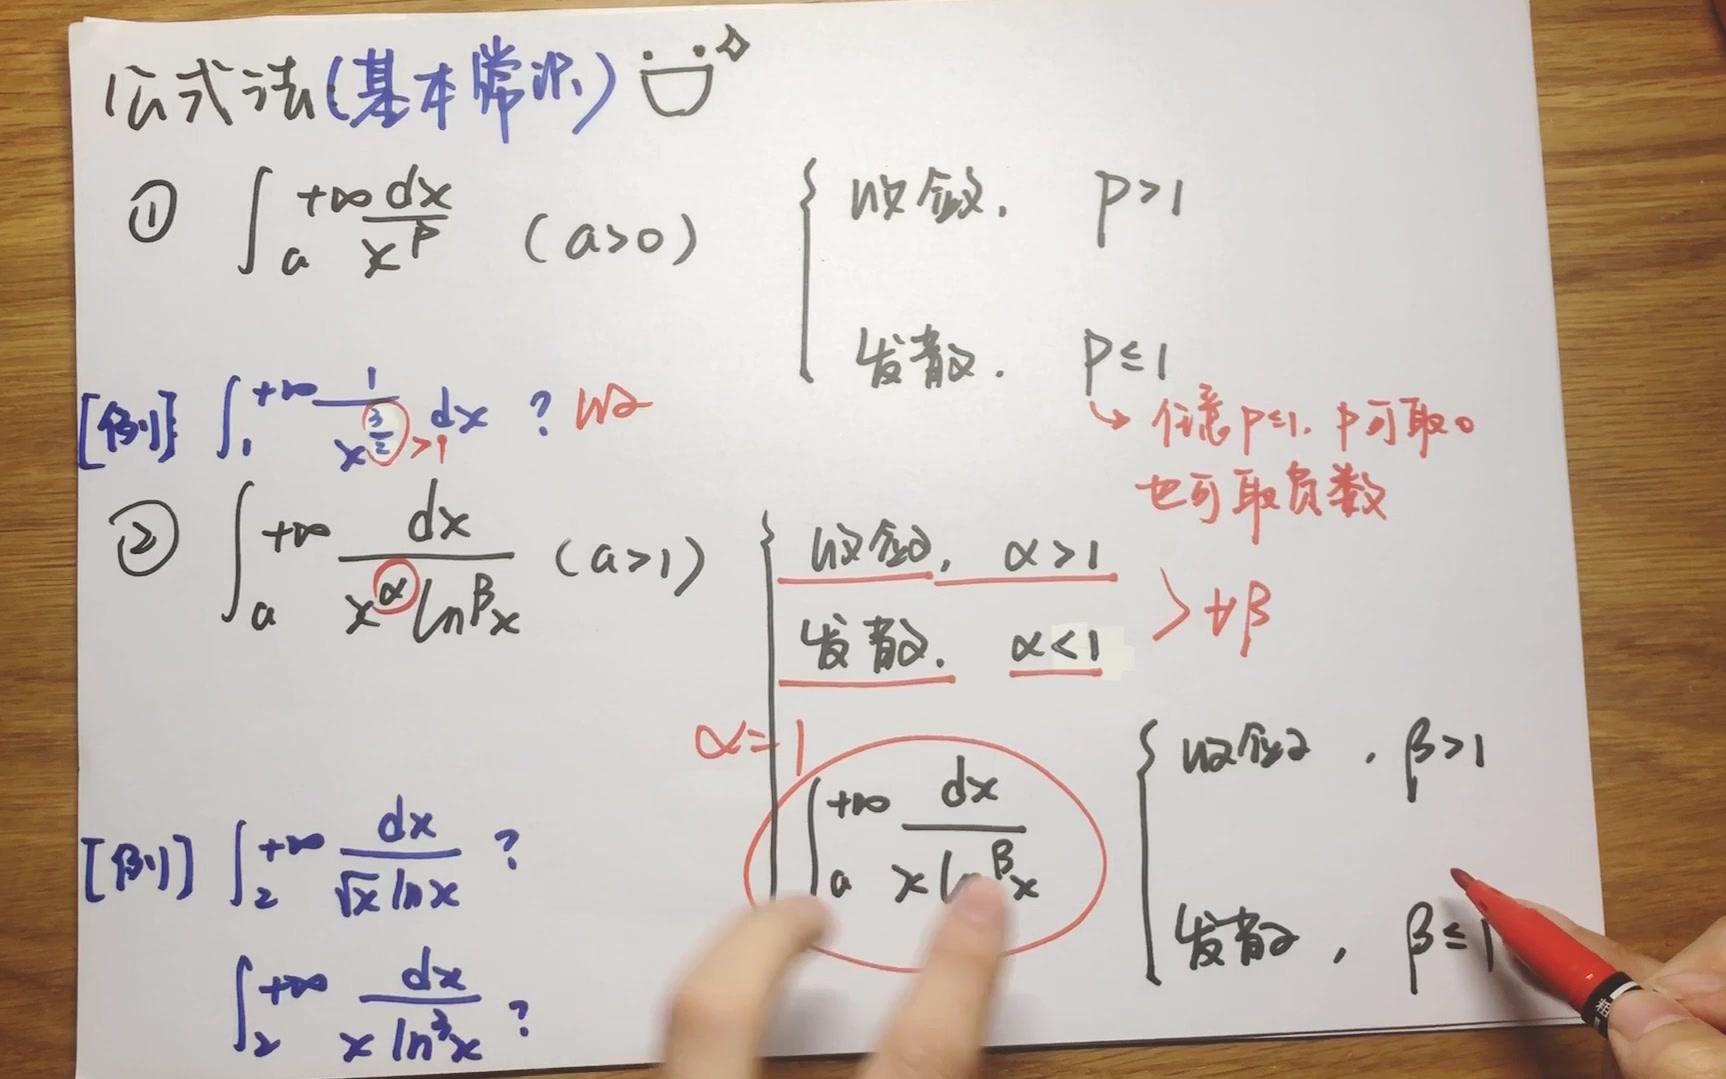 公式法(基本常识)
① ∫_a^{+∞} dx/x^p (a>0) { 收敛, p>1
发散. p≤1
→ 任意p≤1. p可取0
也可取负数
[例] ∫_1^{+∞} 1/x^{3/2} dx ? 收 >1
② ∫_a^{+∞} dx/(x^α ln^β x) (a>1) { 收敛, α>1
发散. α<1
> ∀β
α=1
∫_a^{+∞} dx/(x ln^β x) { 收敛, β>1
发散, β≤1
[例] ∫_2^{+∞} dx/(√x ln x) ?
∫_2^{+∞} dx/(x ln^3 x) ?
粗